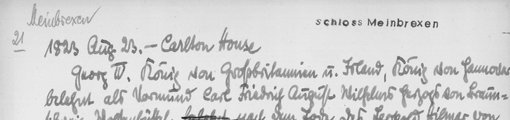 Meinbrexen
schloss Meinbrexen
21
1823 Aug 23. – Carlton House
Georg IV. König von Großbritannien u. Irland, König von Hannover
belehnt als Vormund Carl Friedrich August Wilhelms Herzogs von Braun-
nach dem Tode des von